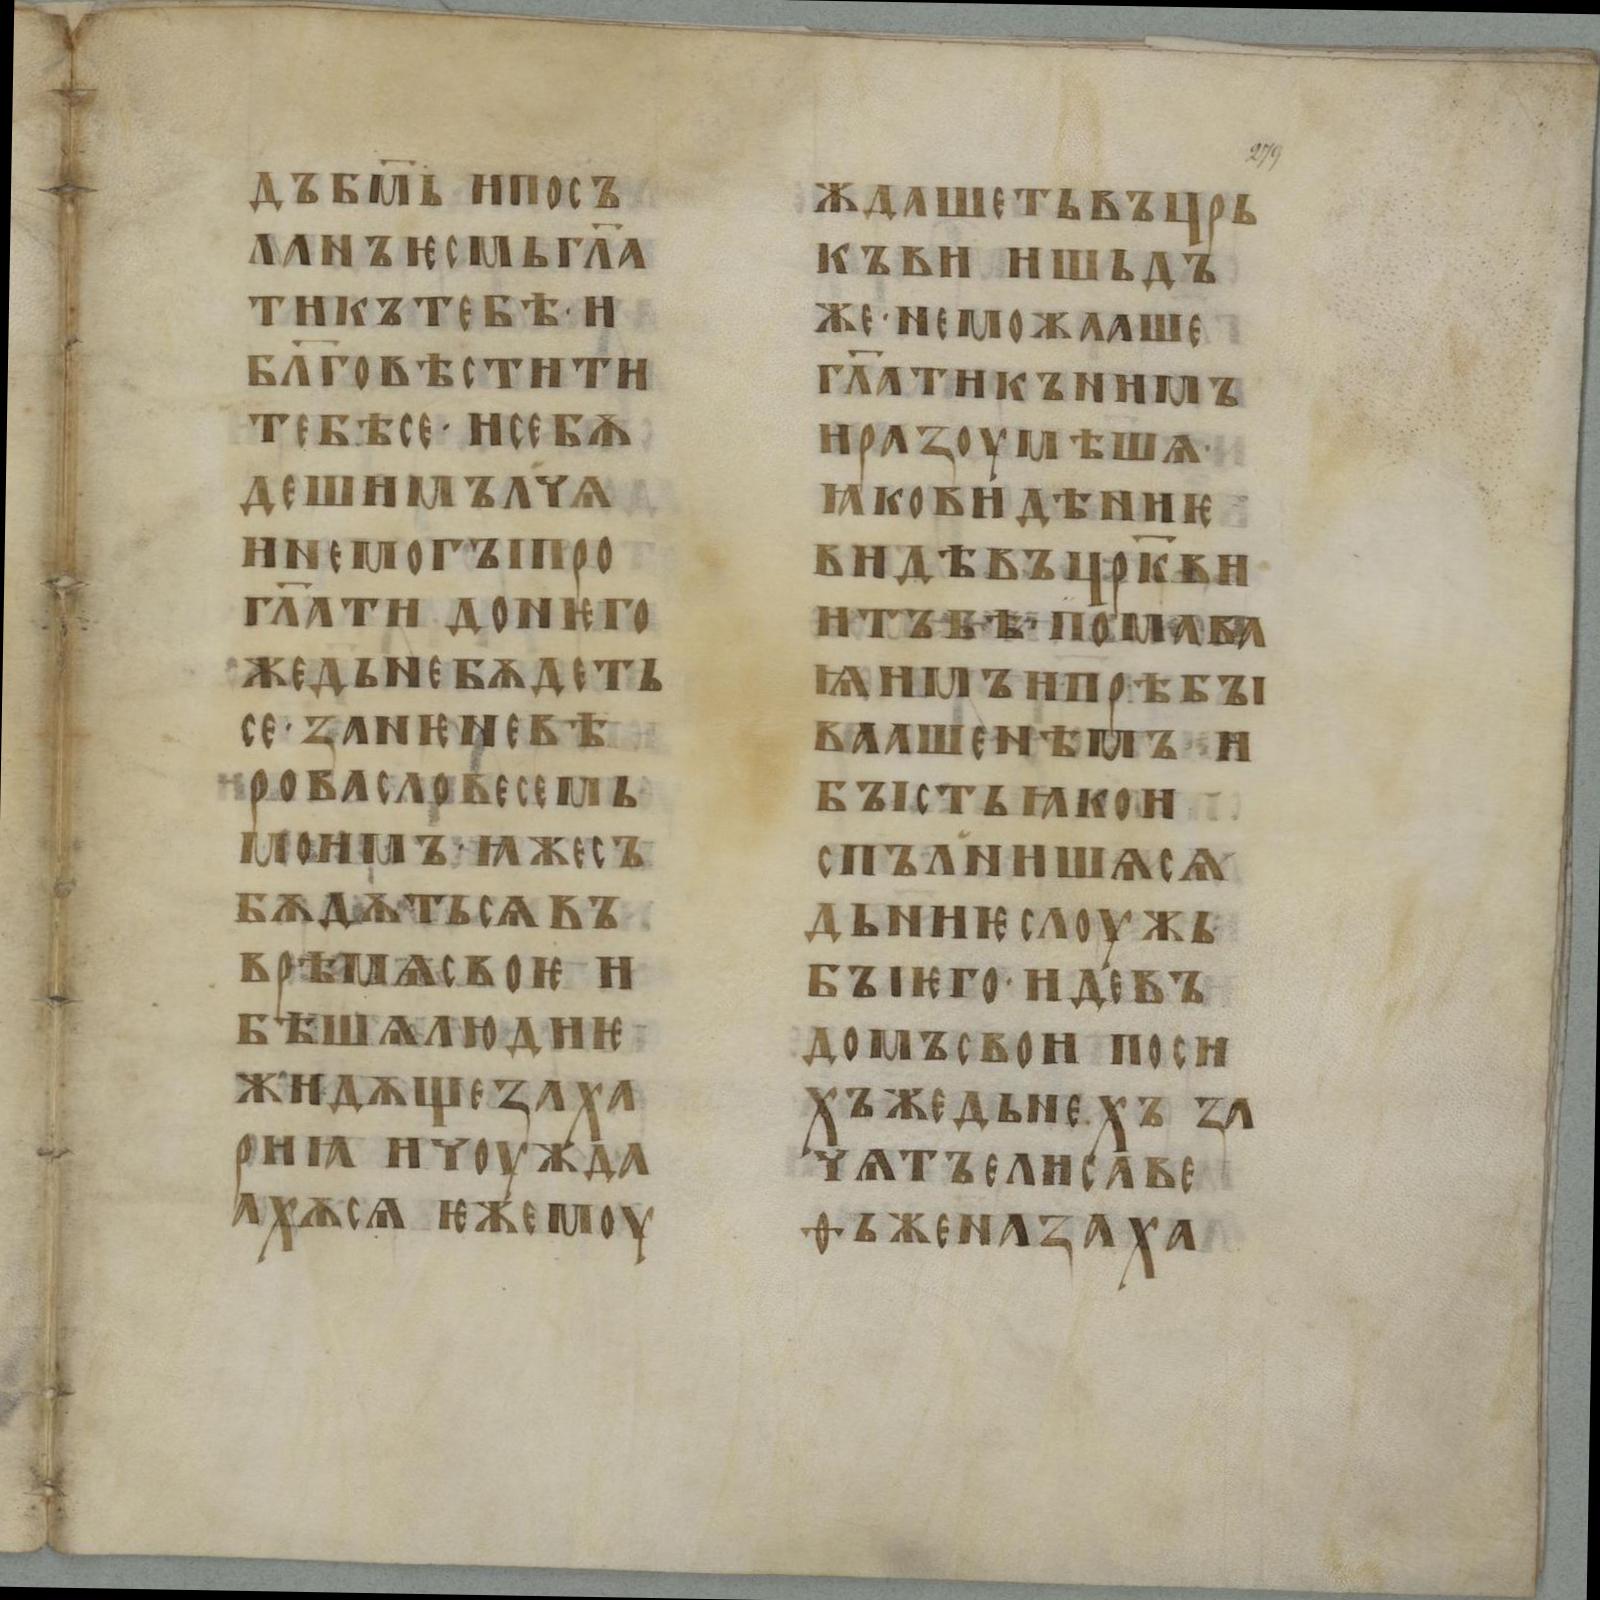 279
дъбм҃ь ипосъ
ланъѥсмьгл҃а
тикътебѣ· и
бл҃говѣстити
тебѣсе· исебѫ
дешимълчѧ
инемогъıпро
гл҃ати донѥго
жедьнебѫдеть
се· занѥневѣ
ровасловесемь
моимъ· ꙗжесъ
бѫдѫтьсѧвъ
врѣмѧсвоѥ и
бѣшѧлюдиѥ
жидѫщезаха
риꙗ ичоужда
ахѫсѧ ѥжемоу
ждашетьвъцрь
къви ишьдъ
же· неможааше
гл҃атикънимъ
иразоумѣшѧ·
ꙗковидѣниѥ
видѣвъцрк҃ви
итъбѣ· помава
ꙗнимъипрѣбъı
вааше нѣмъ и
бъıстьꙗкои
спълнишѧсѧ
дьниѥслоужь
бъıѥго· идевъ
домъсвои поси
хъжедьнехъ за
чѧтъелисаве
ѳьженазаха